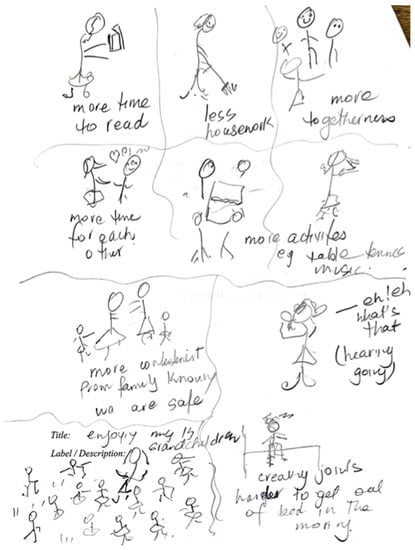 more time
to read
less
housework
more
togetherness
more time
for each
other
more activites
eg table tennis
music.
more contentment
from family knowing
we are safe
eh! eh
what's
that
(hearing
going)
Title: enjoying my 15
grandchildren
Label / Description:
creaky joints
harder to get out
of bed in the
morning